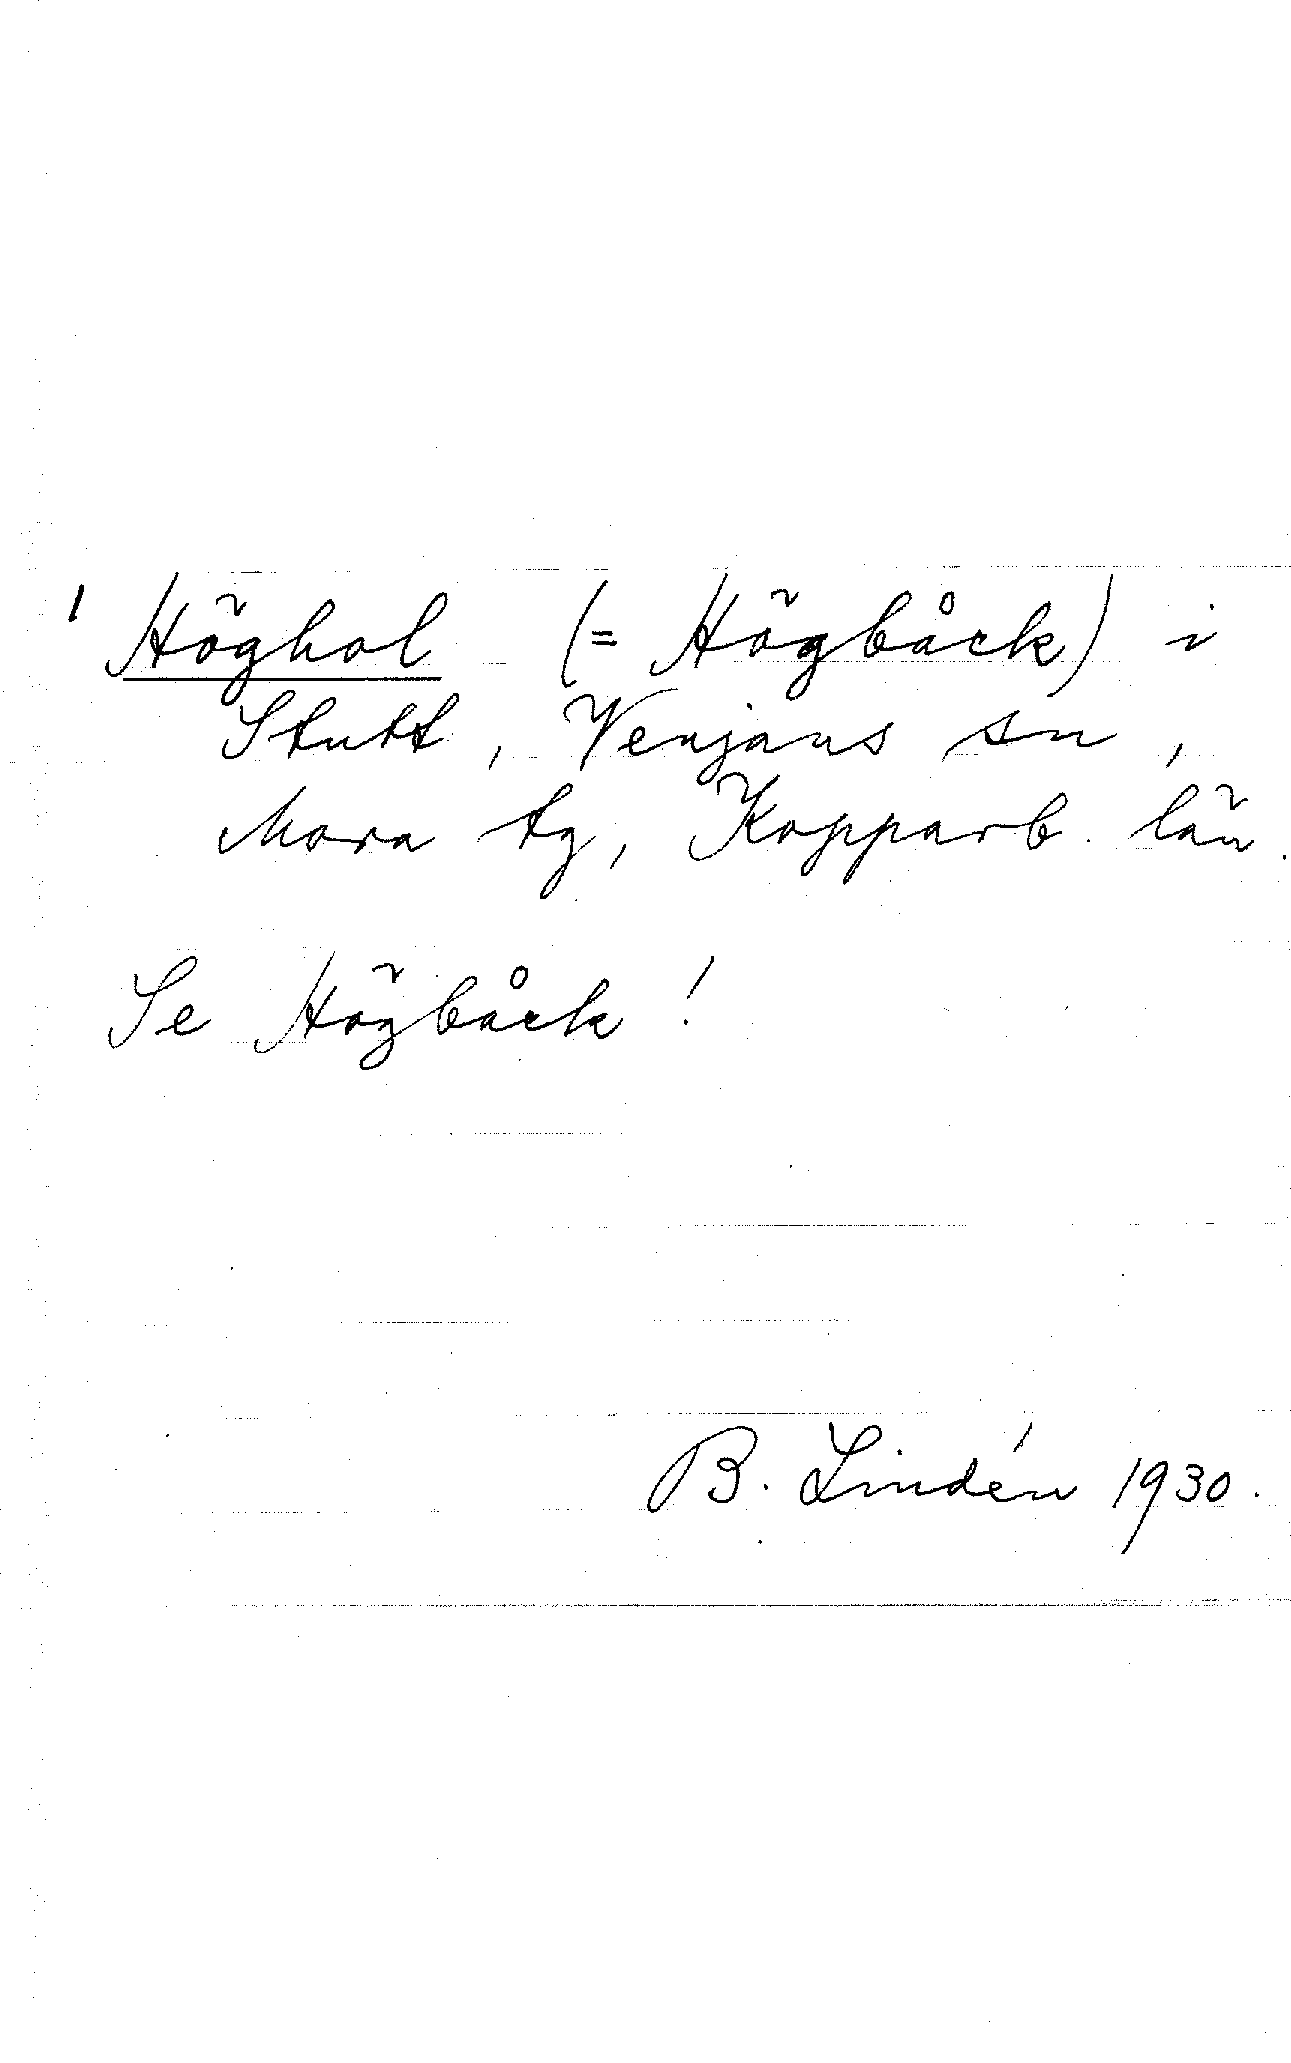 Höghol (= Högbåck) i
Stutt, Venjans sn,
Mora tg, Kopparb. län.
Se Högbåck!
B. Lindén 1930.